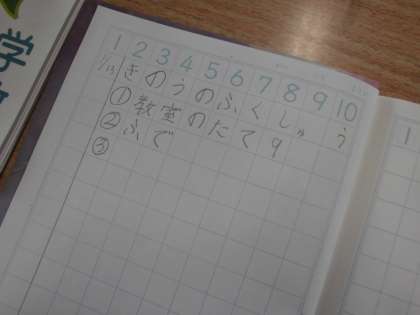 学
1 2 3 4 5 6 7 8 9 10
1/13 きのうのふくしゅう
①教室のたて9
②ふで
③
1